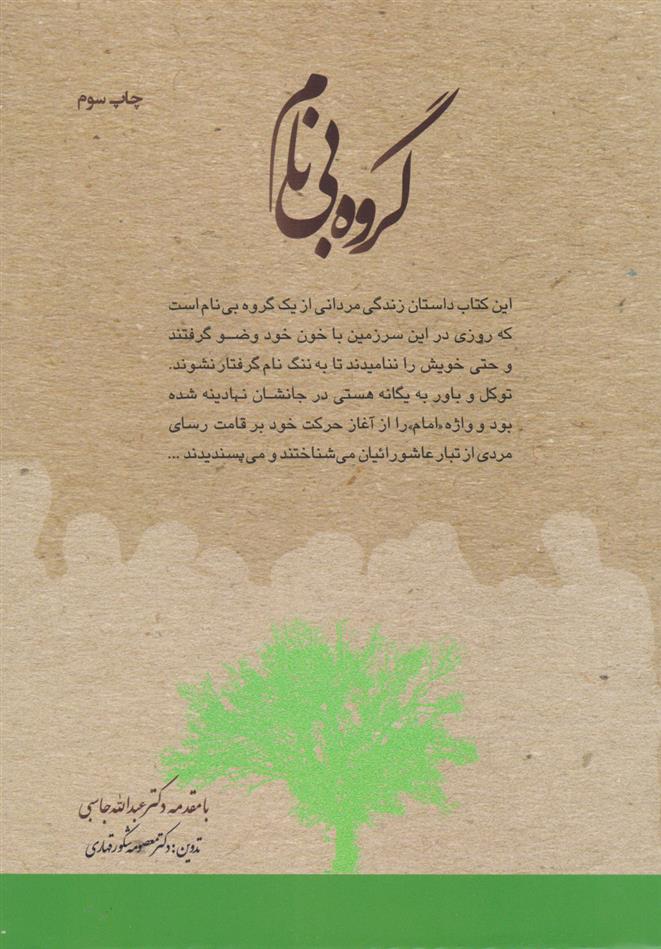 چاپ سوم
گروه بی نام
این کتاب داستان زندگی مردانی از یک گروه بی نام است
که روزی در این سرزمین با خون خود وضو گرفتند
و حتی خویش را ننامیدند تا به ننگ نام گرفتار نشوند.
توکل و باور به یگانه هستی در جانشان نهادینه شده
بود و واژه «امام» را از آغاز حرکت خود بر قامت رسای
مردی از تبار عاشورائیان می‌شناختند و می‌پسندیدند ...
با مقدمه دکتر عبدالله جاسبی
تدوین: دکتر معصومه شکور قهاری